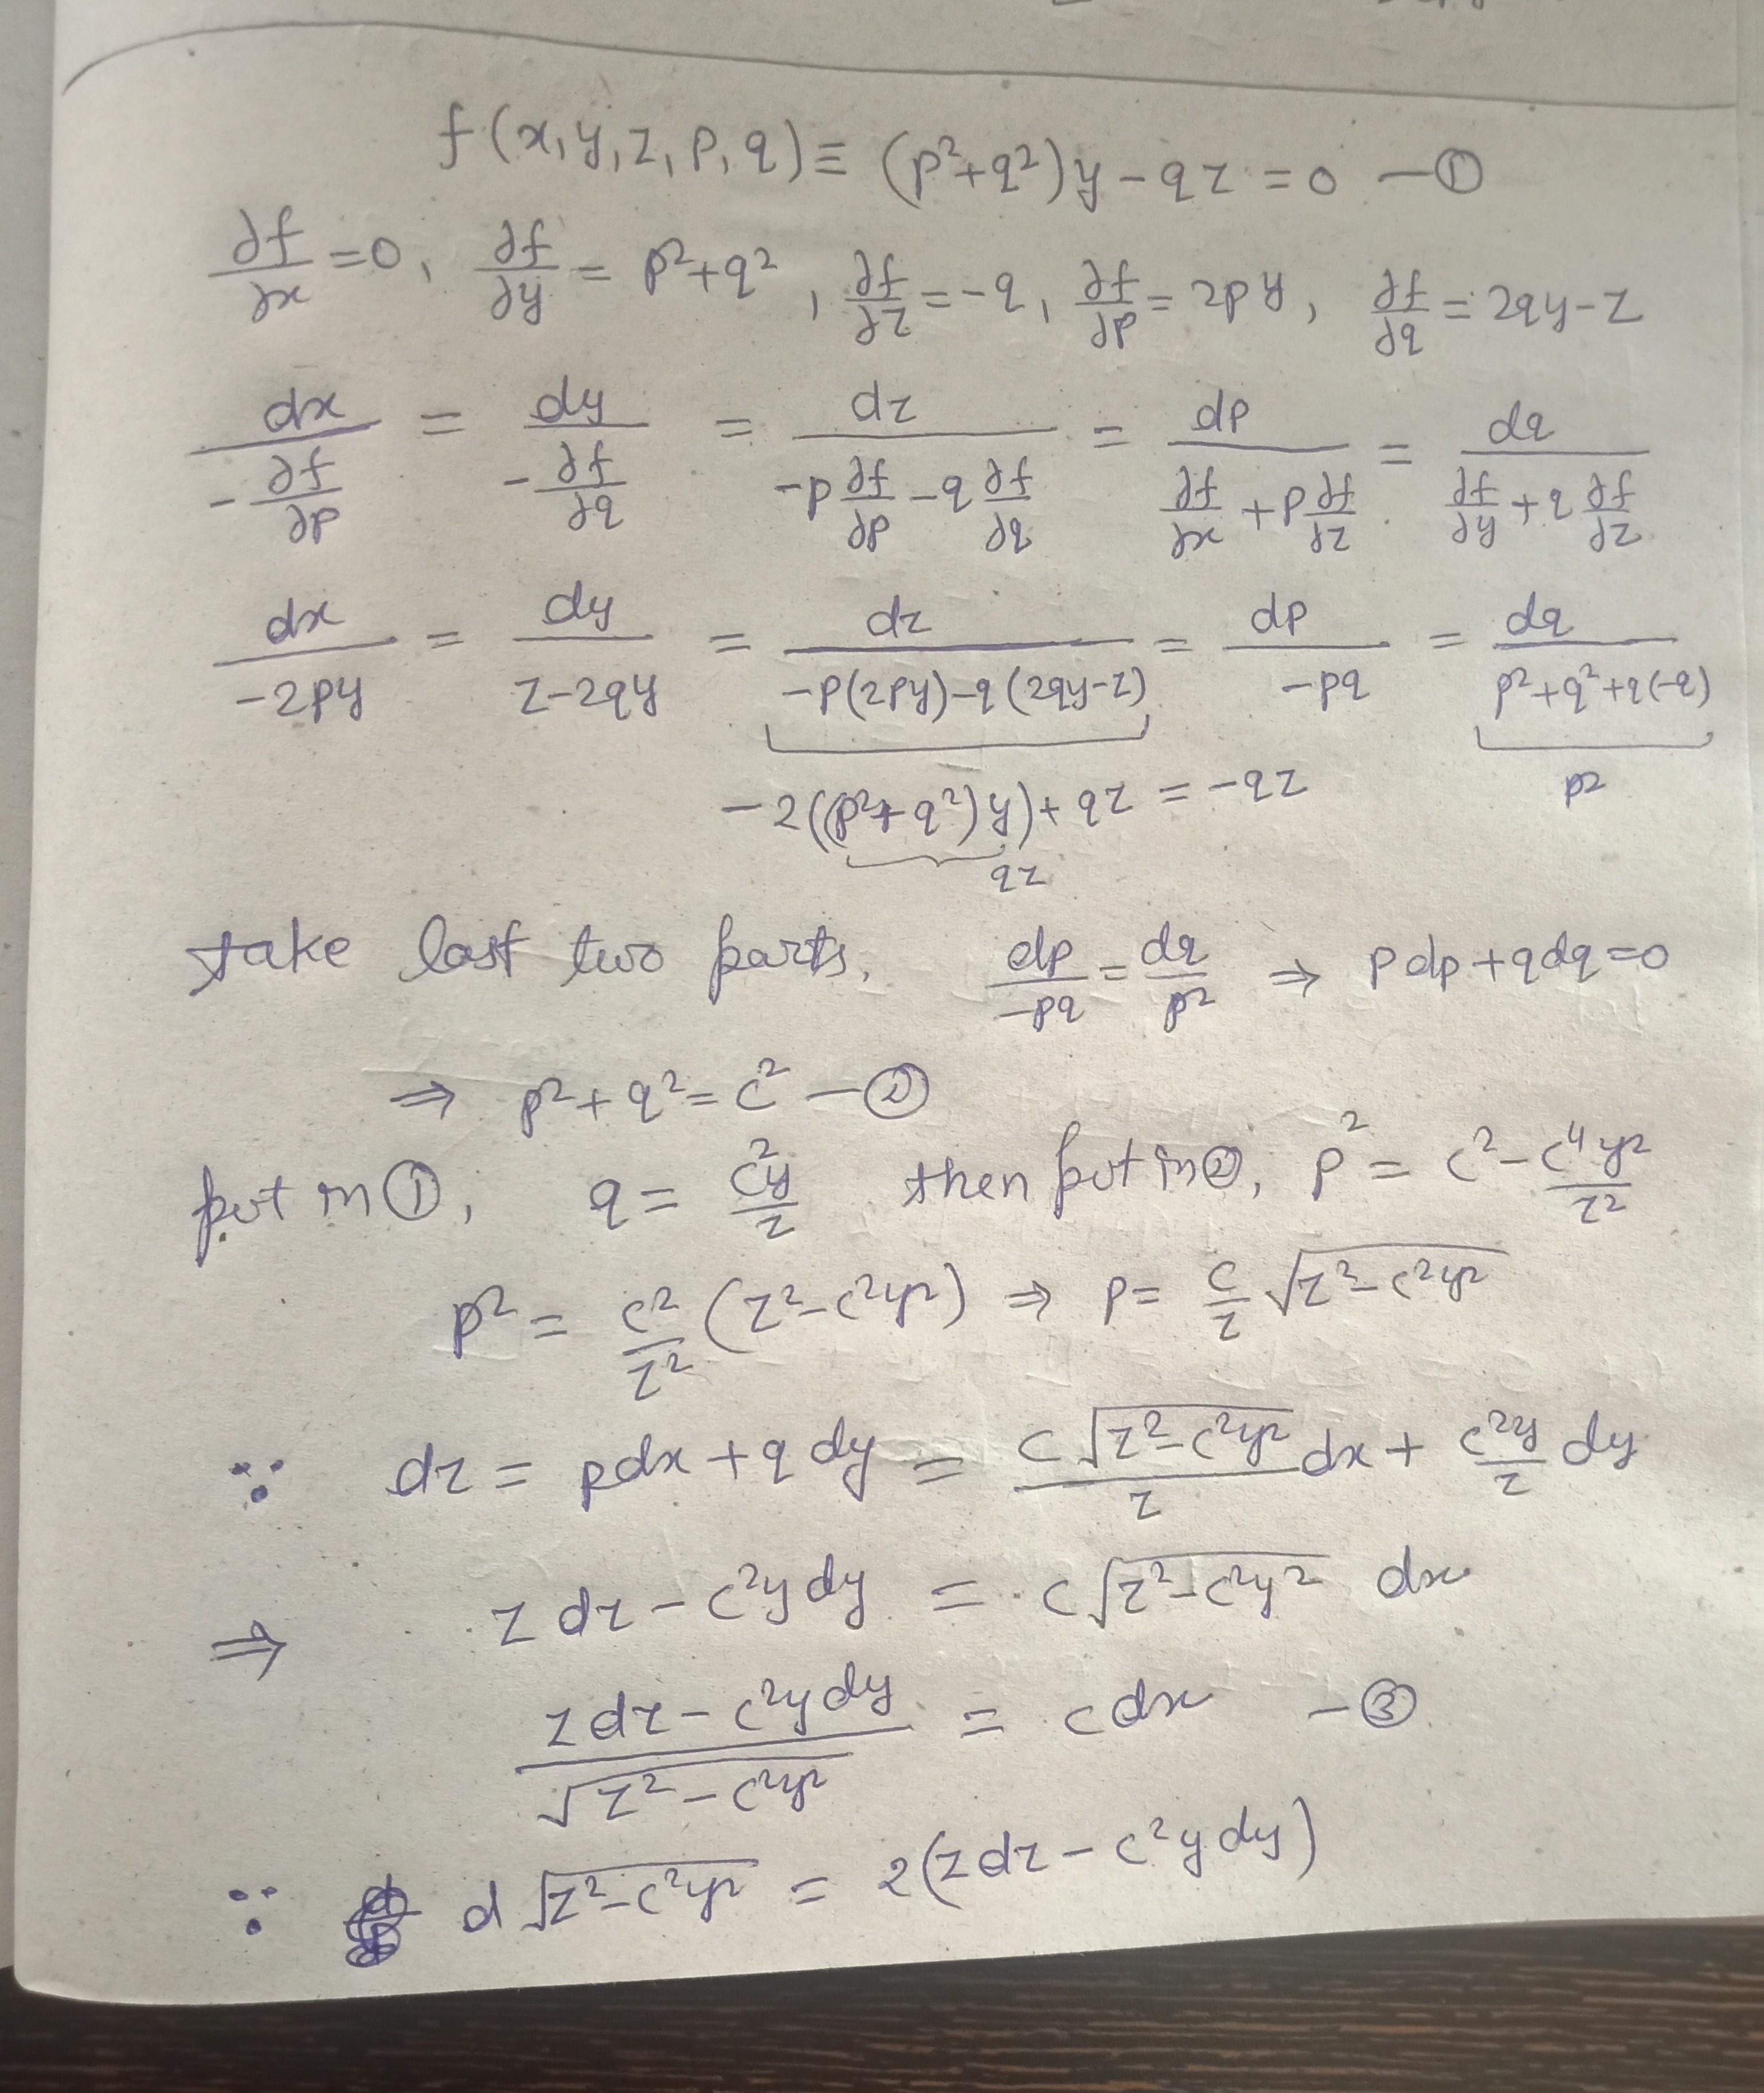 f(x, y, z, p, q) ≡ (p²+q²)y - qz = 0 — ①
∂f/∂x = 0, ∂f/∂y = p²+q², ∂f/∂z = -q, ∂f/∂p = 2py, ∂f/∂q = 2qy-z
dx/(-∂f/∂p) = dy/(-∂f/∂q) = dz/(-p ∂f/∂p - q ∂f/∂q) = dp/(∂f/∂x + p ∂f/∂z) = dq/(∂f/∂y + q ∂f/∂z)
dx/(-2py) = dy/(z-2qy) = dz/(-p(2py)-q(2qy-z)) = dp/(-pq) = dq/(p²+q²+q(-q))
-2((p²+q²)y)+qz = -qz p²
qz
take last two parts, dp/(-pq) = dq/p² ⇒ pdp+qdq=0
⇒ p²+q² = c² — ②
put in ①, q = c²y/z then put in ②, p² = c² - c⁴y²/z²
p² = c²/z² (z²-c²y²) ⇒ p = c/z √(z²-c²y²)
∵ dz = pdx + q dy = c√(z²-c²y²)/z dx + c²y/z dy
⇒ z dz - c²y dy = c√(z²-c²y²) dx
(z dz - c²y dy)/√(z²-c²y²) = c dx — ③
∵ d √(z²-c²y²) = 2(z dz - c²y dy)